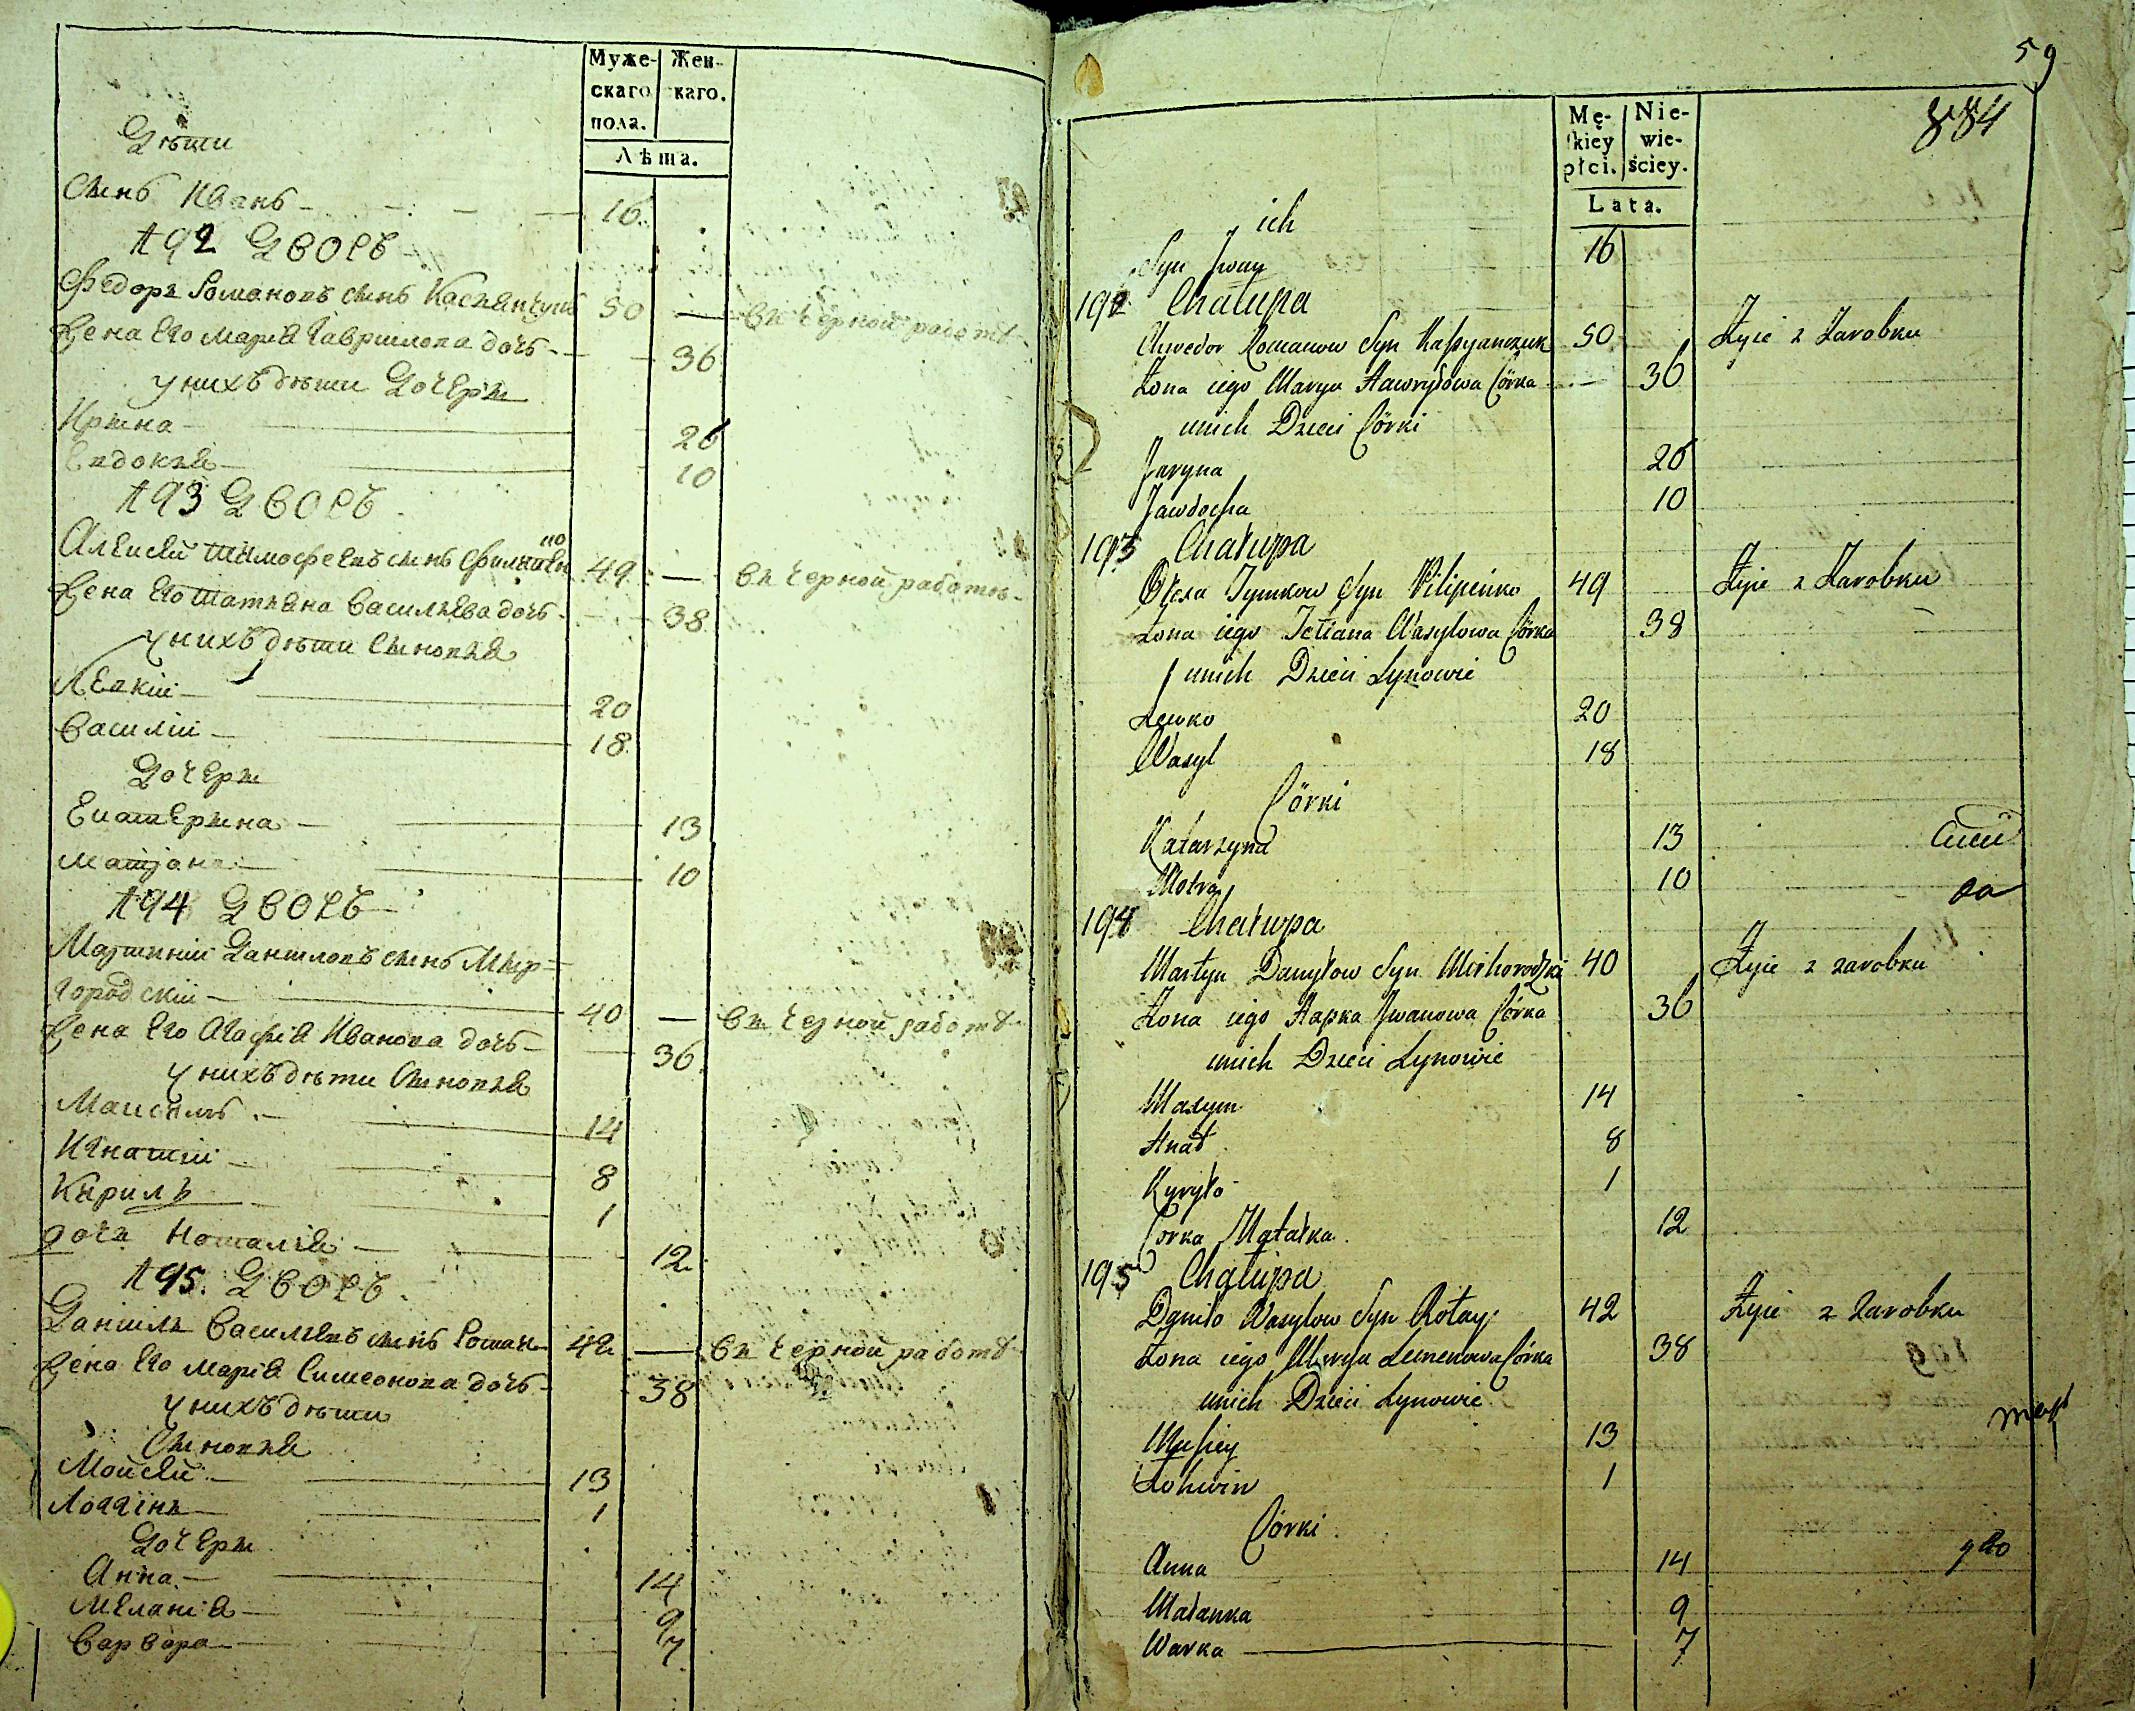 Муже- Жен-
скаго каго.
пола.
Лѣта.
Дѣти
Сынъ Иванъ 16
192 Дворъ
Федоръ Романовъ сынъ Касьянчукъ 50 — въ черной работѣ
Жена его Марія Гаврилова дочь 36
у нихъ дѣти Дочери
Ирина 26
Евдокія 10
193 Дворъ
Алексѣй Тимофеевъ сынъ 49 — въ черной работѣ
Жена его Татьяна Васильева дочь 38
у нихъ дѣти Сыновья
Левкій 20
Василій 18
Дочери
Екатерина 13
Матрона 10
194 Дворъ
Мартиній Даниловъ сынъ Мир-
городскій 40 — въ черной работѣ
Жена его Агафія Иванова дочь 36
у нихъ дѣти Сыновья
Максимъ 14
Игнатій 8
Кирилъ 1
дочь Наталія 12
195. Дворъ
Даніилъ Васильевъ сынъ 42 — въ черной работѣ
Жена его Марія Симеонова дочь 38
у нихъ дѣти
Сыновья
Мойсей 13
Логгинъ 1
Дочери
Анна 14
Меланія 9
Варвара 7
59
884
Mę- Nie-
skiey wie-
płci. ściey.
Lata.
ich
Syn Jwan 16
192 Chałupa
Chwedor Romanow Syn Kasyanczuk 50 Żyie z Zarobku
Żona iego Marya Hawryłowa Córka 36
unich Dzieci Córki
Jaryna 26
Jawdocha 10
193 Chałupa
Ołexa Tymkow Syn Pilipenko 49 Żyie z Zarobku
Żona iego Tetiana Wasylowa Córka 38
unich Dzieci Synowie
Lewko 20
Wasyl 18
Córki
Katarzyna 13
Motra 10
194 Chałupa
Martyn Danyłow Syn Mirhorodzki 40 Żyie z zarobku
Żona iego Hapka Jwanowa Córka 36
unich Dzieci Synowie
Maxym 14
Hnat 8
Kyryło 1
Córka Natałka 12
195 Chałupa
Danyło Wasylow Syn Rotay 42 Żyie z Zarobku
Żona iego Marya Semenowa Córka 38
unich Dzieci Synowie
Musiey 13
Lohwin 1
Córki
Anna 14
Małanka 9
Warka 7